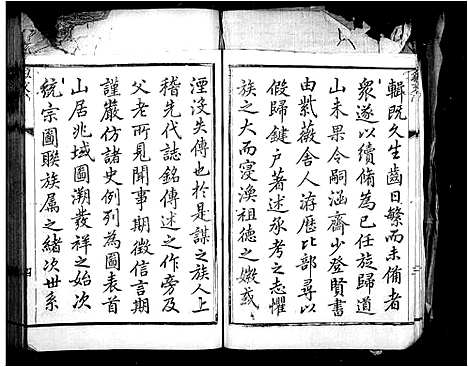 輯既久生齒日繁而未備者
衆遂以續脩為己任旋歸道
山未果令嗣涵齋少登賢書
由紫薇舍人游歷比部尋以
假歸鍵戶著述承考之志懼
族之大而寖渙祖德之嫩或
湮没失傳也於是謀之族人上
稽先代誌銘傳述之作旁及
父老所見聞事期徵信言期
謹嚴仿諸史例列為圖表首
山居兆域圖溯發祥之始次
統宗圖聯族属之緒次世系